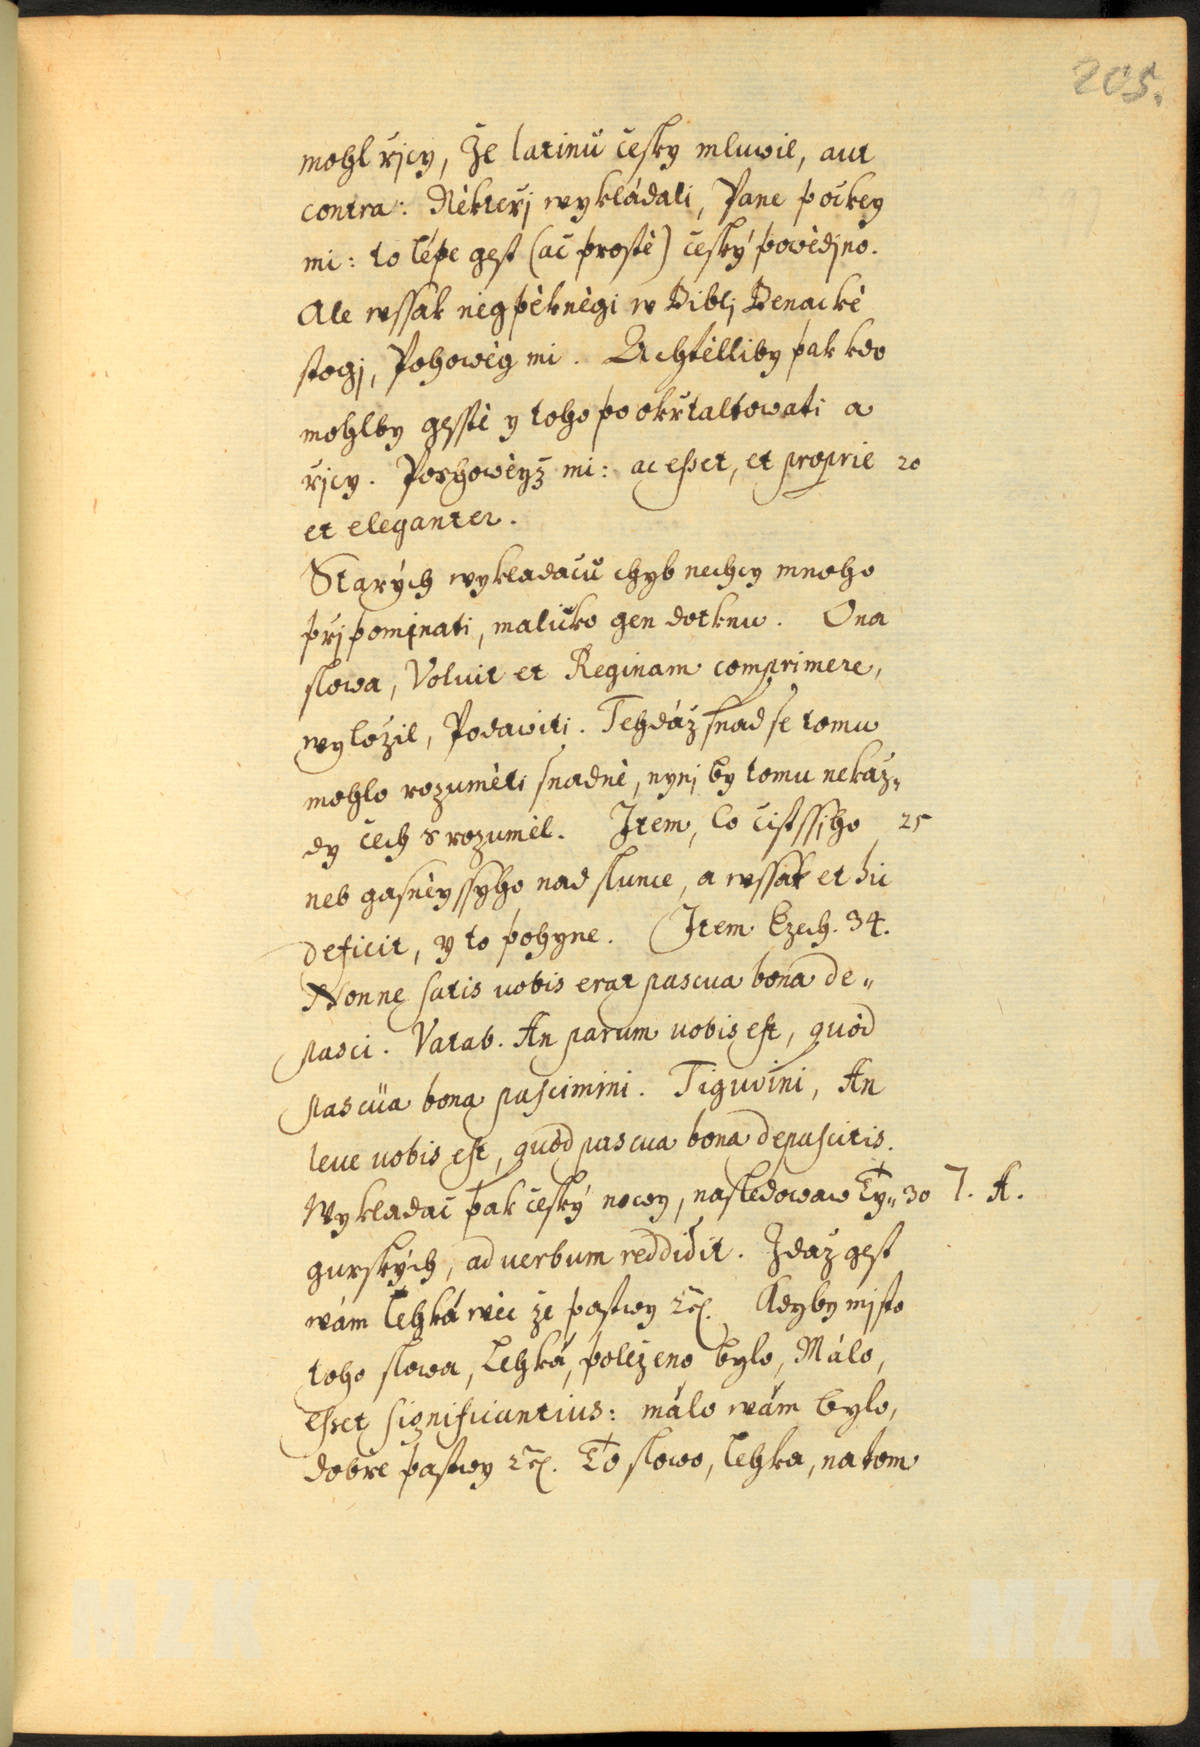 205.
mohl řjcy, že latinů česky mluwil, aut
contra: Někteřj wykládali, Pane počkey
mi: to lépe gest (ač prostě) český powědjno.
Ale wssak neypěkněgi w Biblj Benackė
stogj, Pohowěg mi. Achtělliby pak kdo
mohlby gesstě y toho po okrſtaltowati a
řjcy. Poshowěyž mi: ac esset, et proprie 20
et eleganter.
Starých wykladačů chyb nechcy mnoho
přjpomjnati, maličko gen dotknu. Ona
slowa, Voluit et Reginam comprimere,
wyložil, Podawiti. Tehdáž snad se tomu
mohlo rozuměti snadně, nynj by tomu nekaž„
dy čech srozuměl. Item, Co čistssiho 25
neb gasněyssyho nad slunce, a wssak et hic
deficit, y to pohyne. Item Ezech. 34.
Nonne satis uobis erat pascua bona de„
pasci. Vatab. An parum uobis est, quòd
pascua bona pascimini. Tigurini, An
leue uobis est, quòd pascua bona depascitis.
Wykladač pak český nowy, nasledowaw Ty„ 30 7. A.
gurských, ad uerbum reddidit. Zdaž gest
wám lehká wěc že pastwy &c. Kdyby mjsto
toho slowa, Lehká, položeno bylo, Málo,
esset significantius: málo wám bylo,
dobře pastwy &c. To slowo, lehka, na tom
MZK MZK